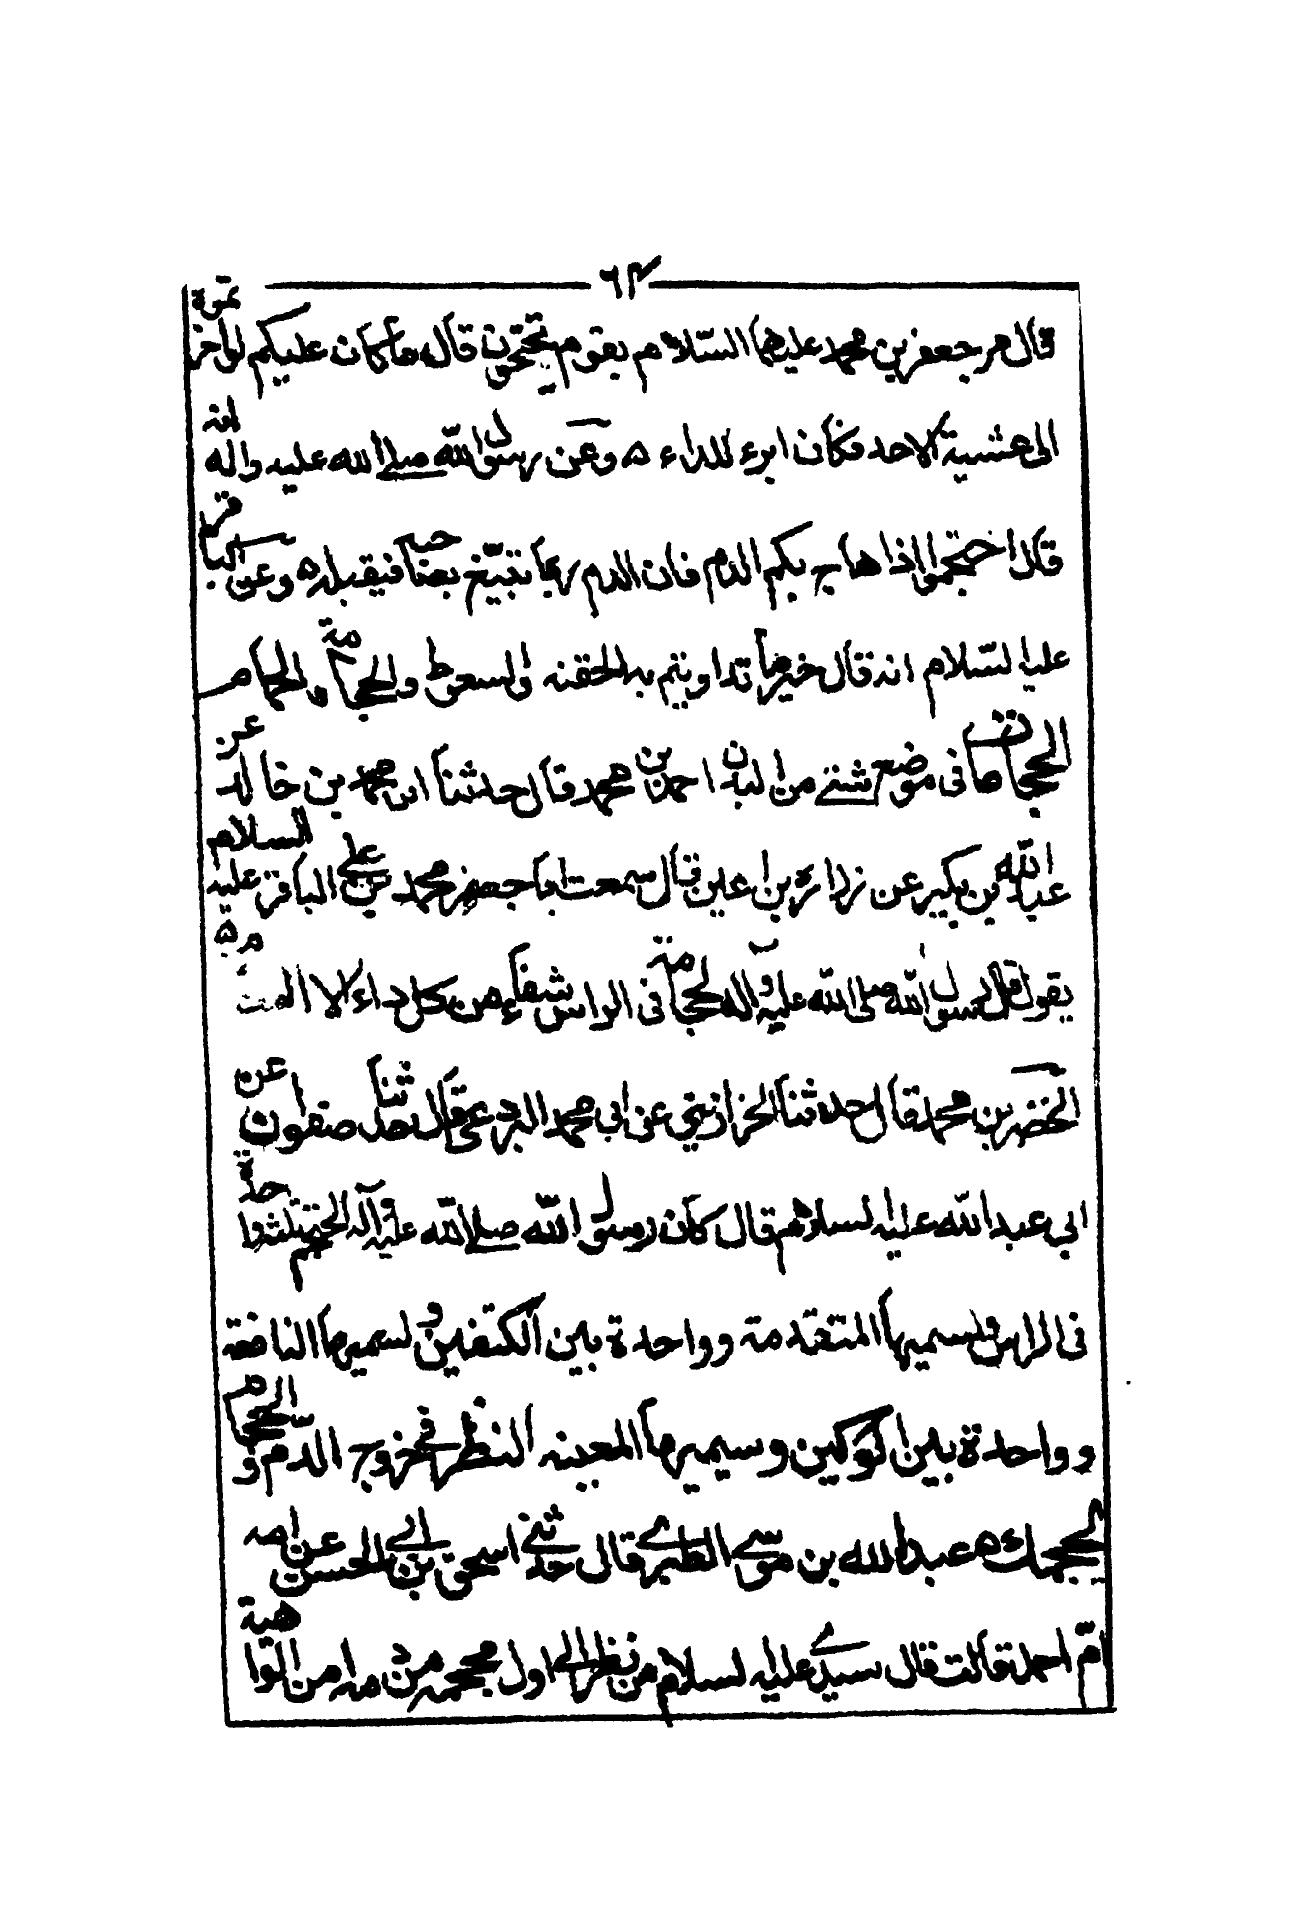 ٦٣
قال مر جعفر بن محمد عليهما السلام بقوم يحتجمون قال ما كان عليكم لو اخرتموه
الى عشية الاحد فكان ابرء للداء ه وعن رسول الله صلى الله عليه واله انه
قال احتجموا اذا هاج بكم الدم فان الدم ربما تبيغ بصاحبه فيقتله ه وعن الباقر
عليه السلام انه قال خير ما تداويتم به الحقنه والسعوط والحجامة والحمام
الحجامة فى موضع شئ من البدن احمد بن محمد قال حدثنا ابن محمد بن خالد عن
عبد الله بن بكير عن زرارة بن اعين قال سمعت ابا جعفر محمد بن على الباقر عليه السلام
يقول قال رسول الله صلى الله عليه وآله الحجامة فى الراس شفاء من كل داء الا السام ه
الخضر بن محمد قال حدثنا الخرازينى عن ابى محمد البردعى قال حدثنا صفوان عن
ابى عبد الله عليه السلام قال كان رسول الله صلى الله عليه وآله يحتجم بثلث واحدة
فى الراس ويسميها المتقدمة وواحدة بين الكتفين ويسميها النافعة
وواحدة بين الوركين ويسميها المعينه النظر فى خروج الدم و الحجام
عبد الله بن موسى الطبرى قال حدثنى اسحق بن ابى الحسن عن امه
ام احمد قالت قال سيدى عليه السلام من نظر الى اول محجمة من دمه امن الواهية